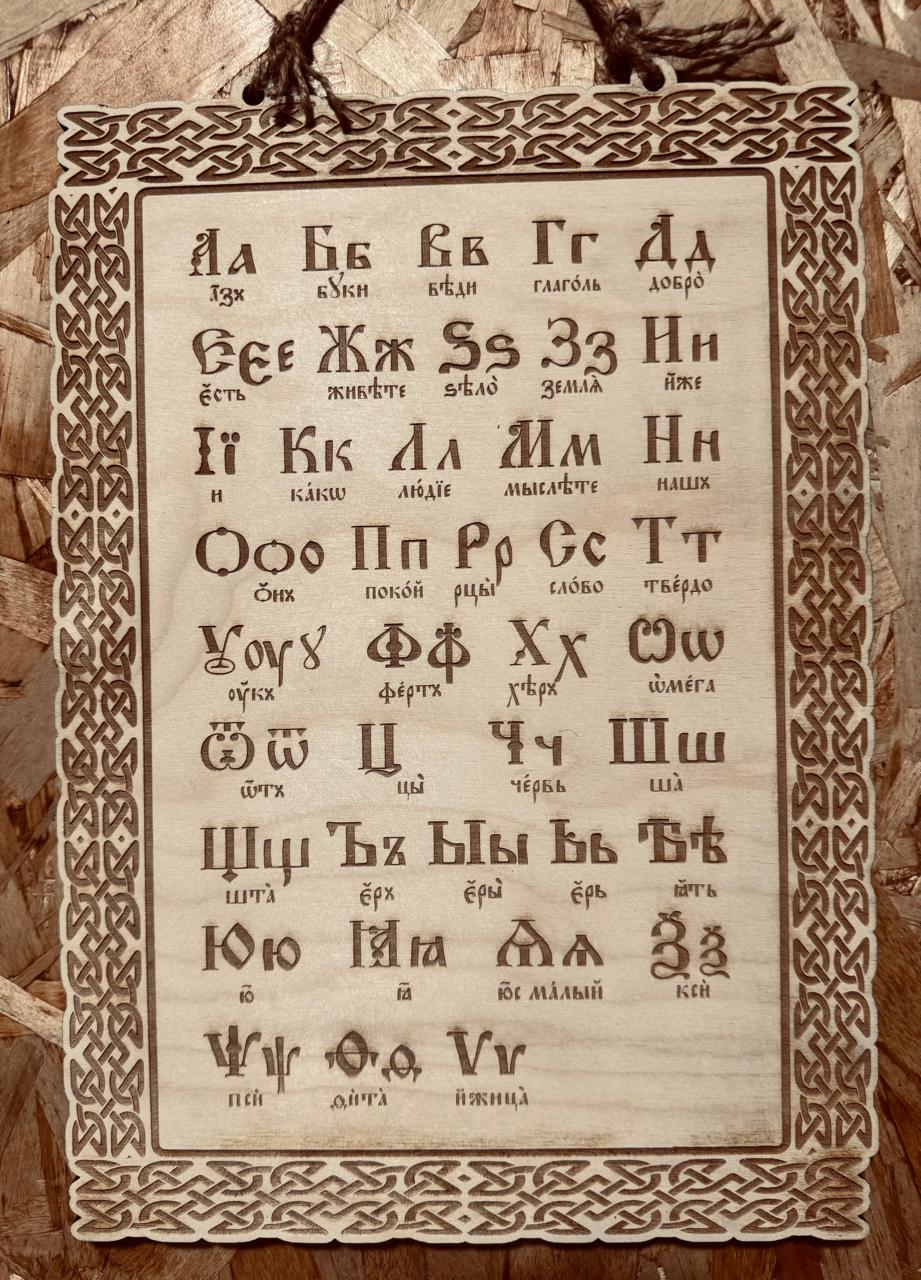 Аа Бб Вв Гг Дд
а҆́зъ бꙋ́ки вѣ́ди глаго́ль добро̀
Єєе Жж Ѕѕ Зз Ии
є҆́сть живѣ́те ѕѣлѡ̀ землѧ̀ и҆́же
Її Кк Лл Мм Нн
и ка́кѡ лю́дїе мыслѣ́те нашъ
Ѻѻо Пп Рр Сс Тт
ѻ҆́нъ поко́й рцы̀ сло́во тве́рдо
Ѹѹꙋ Фф Хх Ѡѡ
ѹ҆́къ фе́ртъ хѣ́ръ ѡ҆ме́га
Ѿѿ Ц Чч Шш
ѿтъ цы̀ че́рвь ша̀
Щщ Ъъ Ыы Ьь Ѣѣ
шта̀ є҆́ръ є҆ры̀ є҆́рь ꙗ҆́ть
Юю Ꙗꙗ Ѧѧ Ѯѯ
ю҆̀ ꙗ҆̀ ю҆́с ма́лый ксѝ
Ѱѱ Ѳѳ Ѵѵ
псѝ ѳита̀ и҆́жица̀